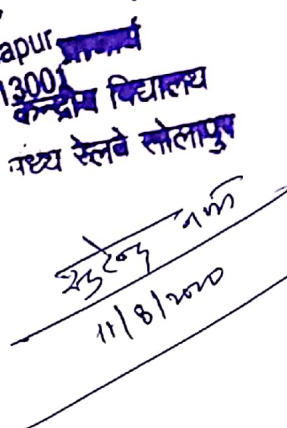 apur
प्राचार्य
13001
केन्द्रीय विद्यालय
मध्य रेलवे सोलापुर
11/8/2020